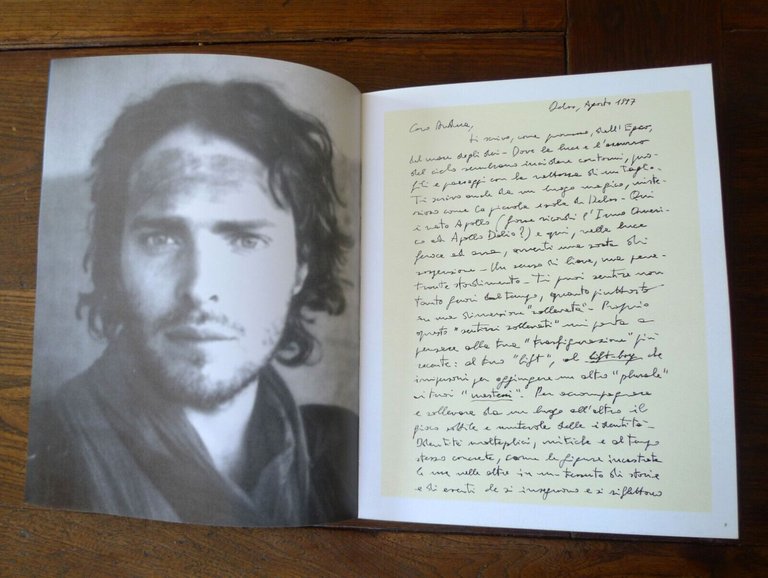 Delos, Agosto 1997
Caro Andrea,
ti scrivo, come promesso, dall'Egeo,
dal mare degli dei – Dove la luce e l'azzurro
del cielo sembrano incidere contorni, pro-
fili e paesaggi con la nettezza di un taglio.
Ti scrivo anche da un luogo magico, miste-
rioso come la piccola isola di Delos – Qui
è nato Apollo (forse ricordi l'Inno Omeri-
co ad Apollo Delio?) e qui, nella luce
feroce ed avverti una sorta di
sospensione – Un senso di lieve, ma pene-
trante stordimento – Ti puoi sentire non
tanto fuori dal tempo, quanto piuttosto
su una dimensione "sollevata" – Proprio
questo "sentirsi sollevati" mi porta a
pensare alla tua "trasfigurazione" più
recente: al tuo "lift", al lift-boy che
impersoni per aggiungere un altro "plurale"
ai tuoi " ". Per accompagnare
e sollevare da un luogo all'altro il
gioco sottile e mutevole delle identità –
Identità molteplici, mitiche e al tempo
stesso concrete, come le figure incastrate
le une nelle altre in un tessuto di storie
e di eventi che si inseguono e si riflettono